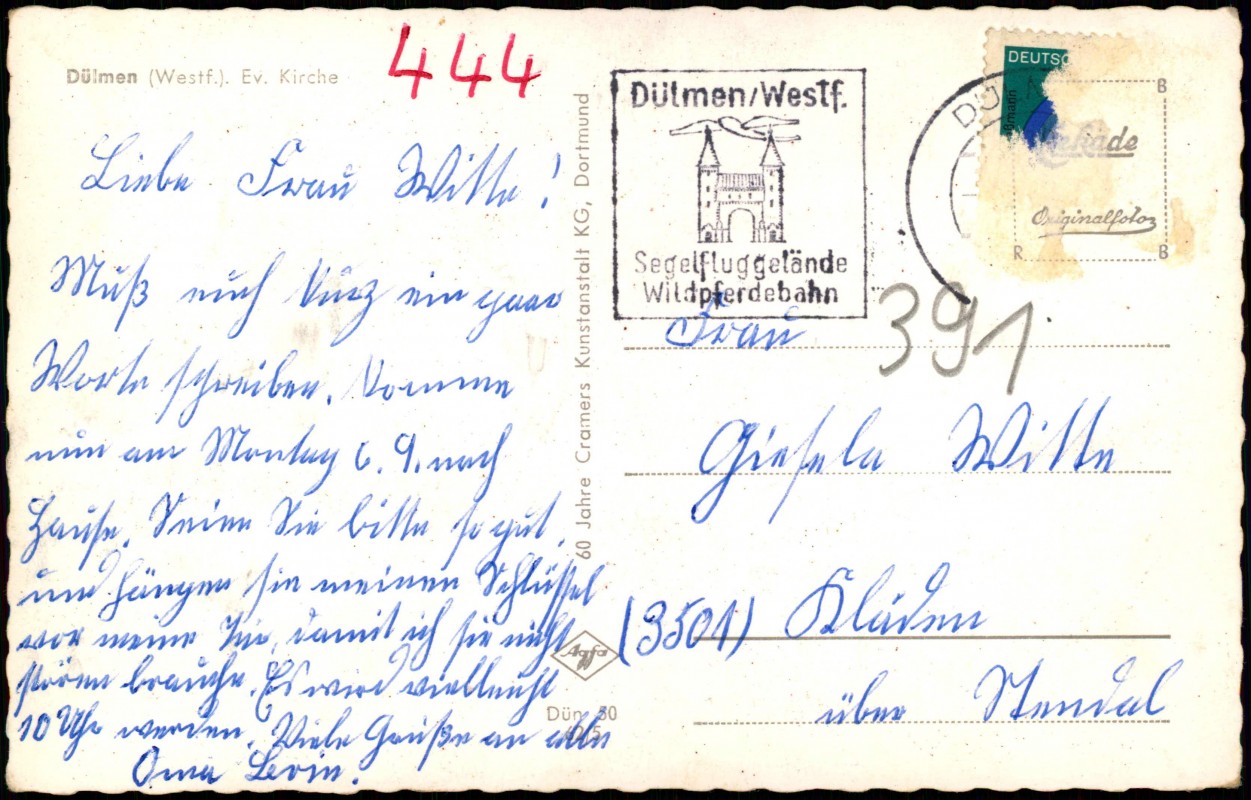 Dülmen (Westf.). Ev. Kirche
444
Liebe Frau Witte!
Muß euch kurz ein paar
Worte schreiben. Komme
nun am Montag 6. 9. nach
Hause. Seien Sie bitte so gut,
und hängen sie meinen Schlüssel
vor meine Tür, damit ich sie nicht
stören brauche. Es wird vielleicht
10 Uhr werden. Viele Grüße an alle
Oma
60 Jahre Cramers Kunstanstalt KG, Dortmund
Agfa
Dülmen/Westf.
Segelfluggelände
Wildpferdebahn
DEUTSC
DÜ
B
Originalfoto
R B
391
Frau
Giesela Witte
(3501) Kläden
über Stendal